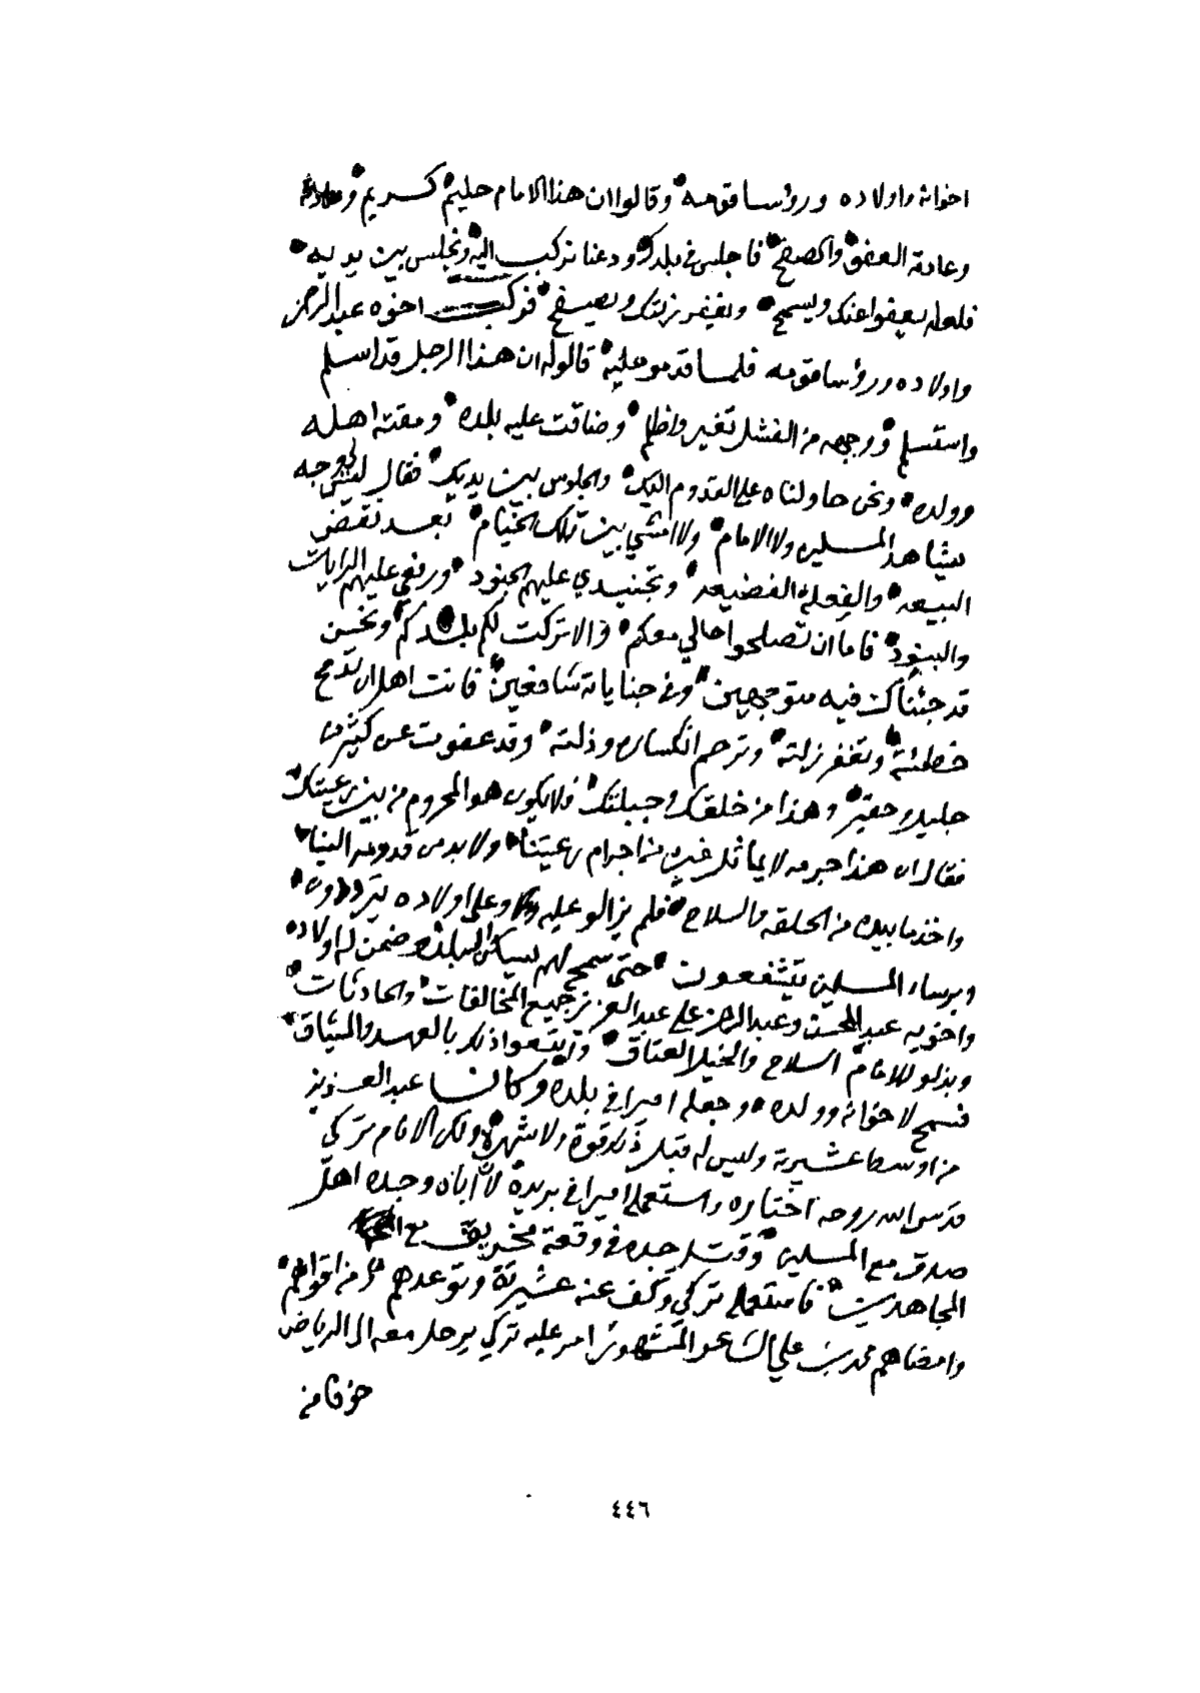 اخوانه واولاده ورؤسا قومه وقالوا ان هذا الامام حليم كريم
وعادته العفو والصفح فاجلس في بلدك ودعنا نركب اليه ونجلس بين يديه
فلعله يعفوا عنك ويسمح ويغفر زلتك ويصفح فركب اخوه عبدالرحمن
واولاده ورؤسا قومه فلما قدمو عليه قالوله ان هذا الرجل قد اسلم
واستسلم ووجهه من الفشل تغير واظلم وضاقت عليه بلده ومقته اهله
وولده ونحن حاولناه على القدوم اليك والجلوس بين يديك فقال ليس لي وجه
يشاهد المسلمين ولا الامام ولا امشي بين تلك الخيام بعد نقض
البيعه والفعلة الفضيعه وتجنيدي عليهم الجنود ورفعي عليهم الرايات
والبنود فاما ان تصلحوا حالي معكم والا تركت لكم بلدكم ونحن
قد جئناك فيه متوجهين وفي جناياته شافعين فانت اهل ان تدمح
خطئته وتغفر زلته وترحم انكساره وذلته وقد عفوت عن كثير من
جليل وحقير وهذا من خلقك وجبلتك فلا يكون هو المحروم من بين رعيتك
فقال ان هذا جرمه لا يماثل غيره من اجرام رعيتنا ولا بد من قدومه الينا
واخذ ما بيده من الحلقه والسلاح فلم يزالو عليه وعلى اولاده يترددون
وبرساء المسلمين يتشفعون حتى سمح لهم بسكن البلد وضمن له اولاده
واخويه عبدالمحسن وعبدالرحمن على عبدالعزيز جميع المخالفات والحادثات
وبذلو للامام السلاح والخيل العتاق واتبعوا ذلك بالعهد والميثاق
فسمح لاخوانه وولده وجعله اميرا في بلده وكان عبدالعزيز
من اوسط عشيرته وليس له قبل ذلك قوة ولا شهرة ولكن الامام تركي
قدس الله روحه اختاره واستعمله اميرا في بريدة لان اباه وجده اهل
صدق مع المسلمين وقتل جده في وقعة مخيريق مع
المجاهدين فاستعمله تركي وكف عنه عشيرته وتوعدهم ومن اقواهم
وامضاهم محمد بن علي الشاعر المشهور امر عليه تركي يرحل معه الى الرياض
خوفا من
٤٤٦